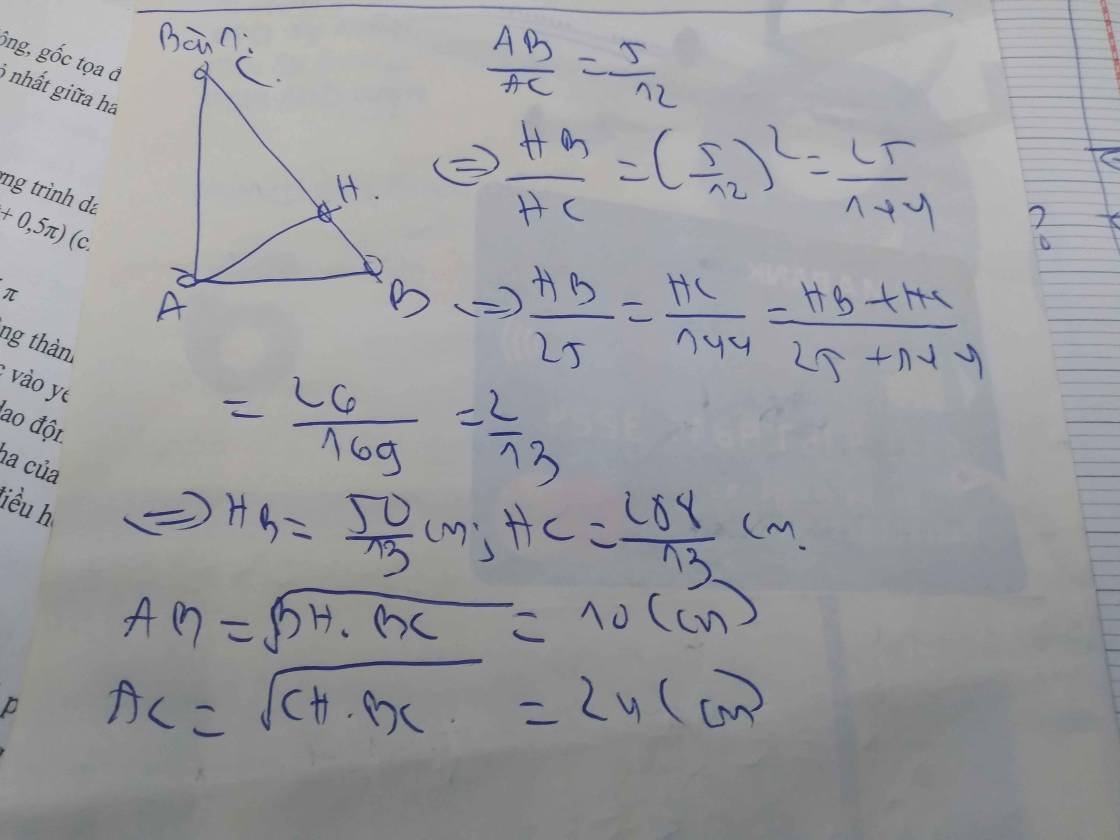 ông, gốc tọa đ
ỏ nhất giữa ha
ơng trình da
+ 0,5π) (c
π
ng thàn
c vào yế
dao độn
ha của
điều h
p
Bài 1:
C.
H.
A
B
AB/AC = 5/12
<=> HB/HC = (5/12)² = 25/144
<=> HB/25 = HC/144 = HB + HC/25 + 144
= 26/169 = 2/13
=> HB = 50/13 cm; HC = 288/13 cm.
AB = √BH. BC = 10 (cm)
AC = √CH. BC = 24 (cm)